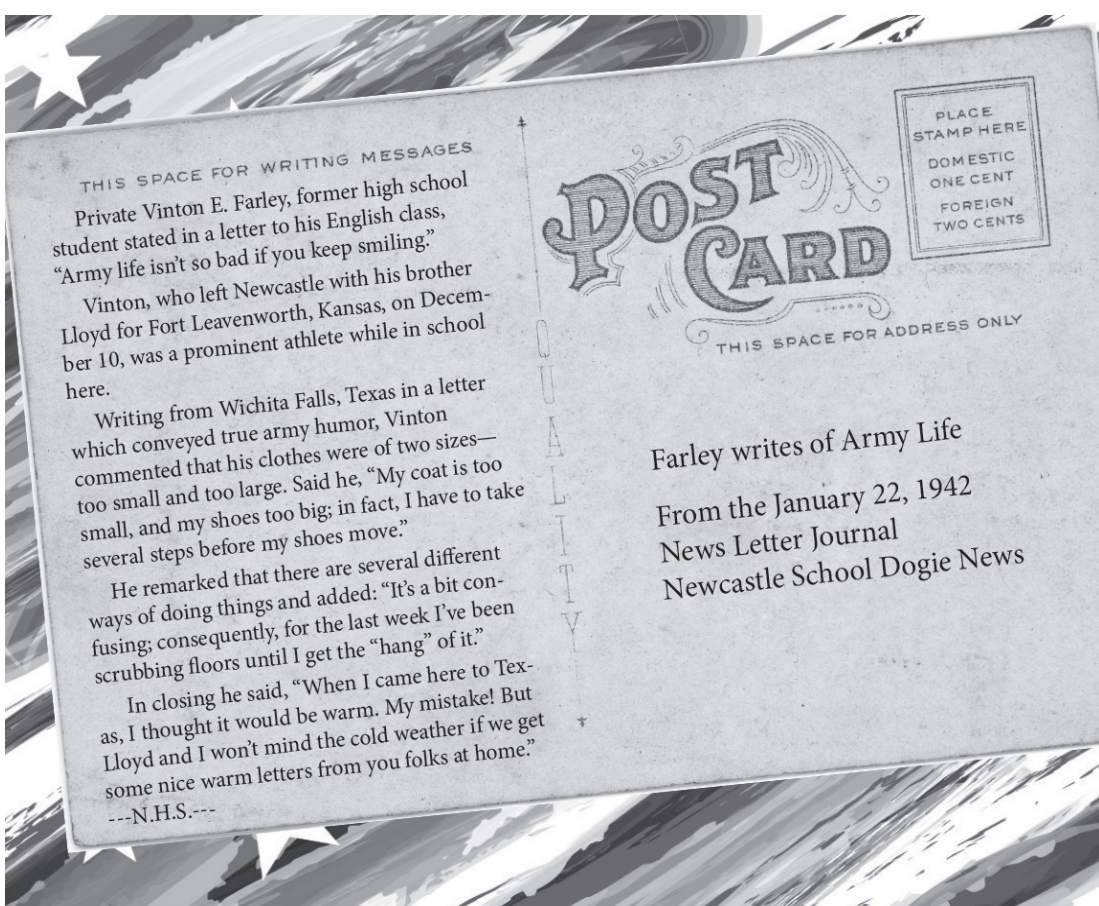 THIS SPACE FOR WRITING MESSAGES
Private Vinton E. Farley, former high school
student stated in a letter to his English class,
“Army life isn’t so bad if you keep smiling.”
Vinton, who left Newcastle with his brother
Lloyd for Fort Leavenworth, Kansas, on Decem-
ber 10, was a prominent athlete while in school
here.
Writing from Wichita Falls, Texas in a letter
which conveyed true army humor, Vinton
commented that his clothes were of two sizes—
too small and too large. Said he, “My coat is too
small, and my shoes too big; in fact, I have to take
several steps before my shoes move.”
He remarked that there are several different
ways of doing things and added: “It’s a bit con-
fusing; consequently, for the last week I’ve been
scrubbing floors until I get the “hang” of it.”
In closing he said, “When I came here to Tex-
as, I thought it would be warm. My mistake! But
Lloyd and I won’t mind the cold weather if we get
some nice warm letters from you folks at home.”
---N.H.S.---
QUALITY
POST
CARD
PLACE
STAMP HERE
DOMESTIC
ONE CENT
FOREIGN
TWO CENTS
THIS SPACE FOR ADDRESS ONLY
Farley writes of Army Life
From the January 22, 1942
News Letter Journal
Newcastle School Dogie News